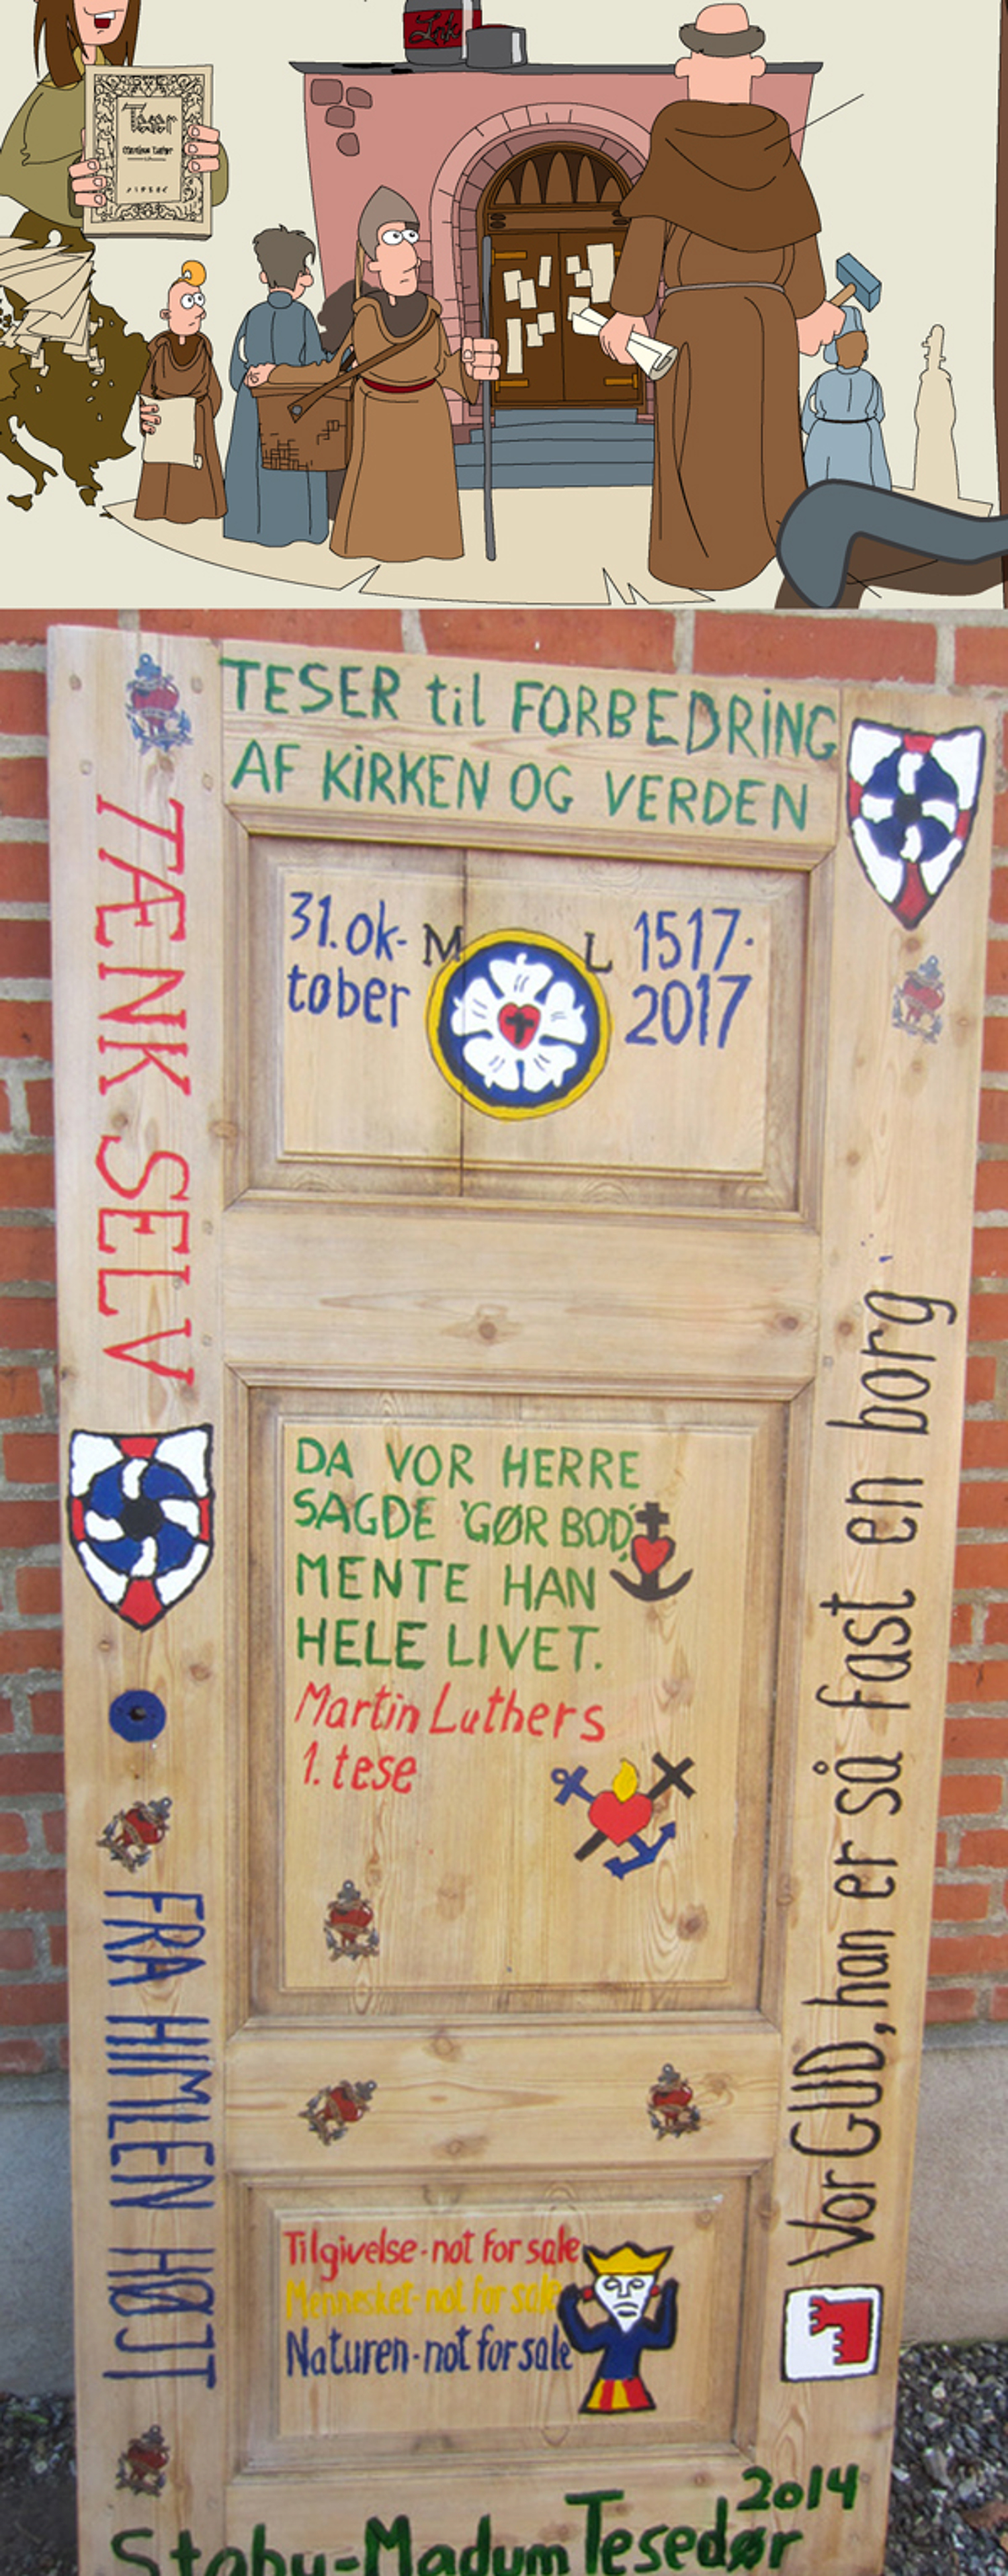 Ink
Teser
Martin Luther
TESER til FORBEDRING
AF KIRKEN OG VERDEN
TÆNK SELV
31. ok-
tober
M L
1517-
2017
DA VOR HERRE
SAGDE 'GØR BOD',
MENTE HAN
HELE LIVET.
Martin Luthers
1. tese
FRA HIMLEN HØJT
Vor GUD, han er så fast en borg
Tilgivelse-not for sale
Mennesket-not for sale
Naturen-not for sale
2014
Staby-Madum Tesedør